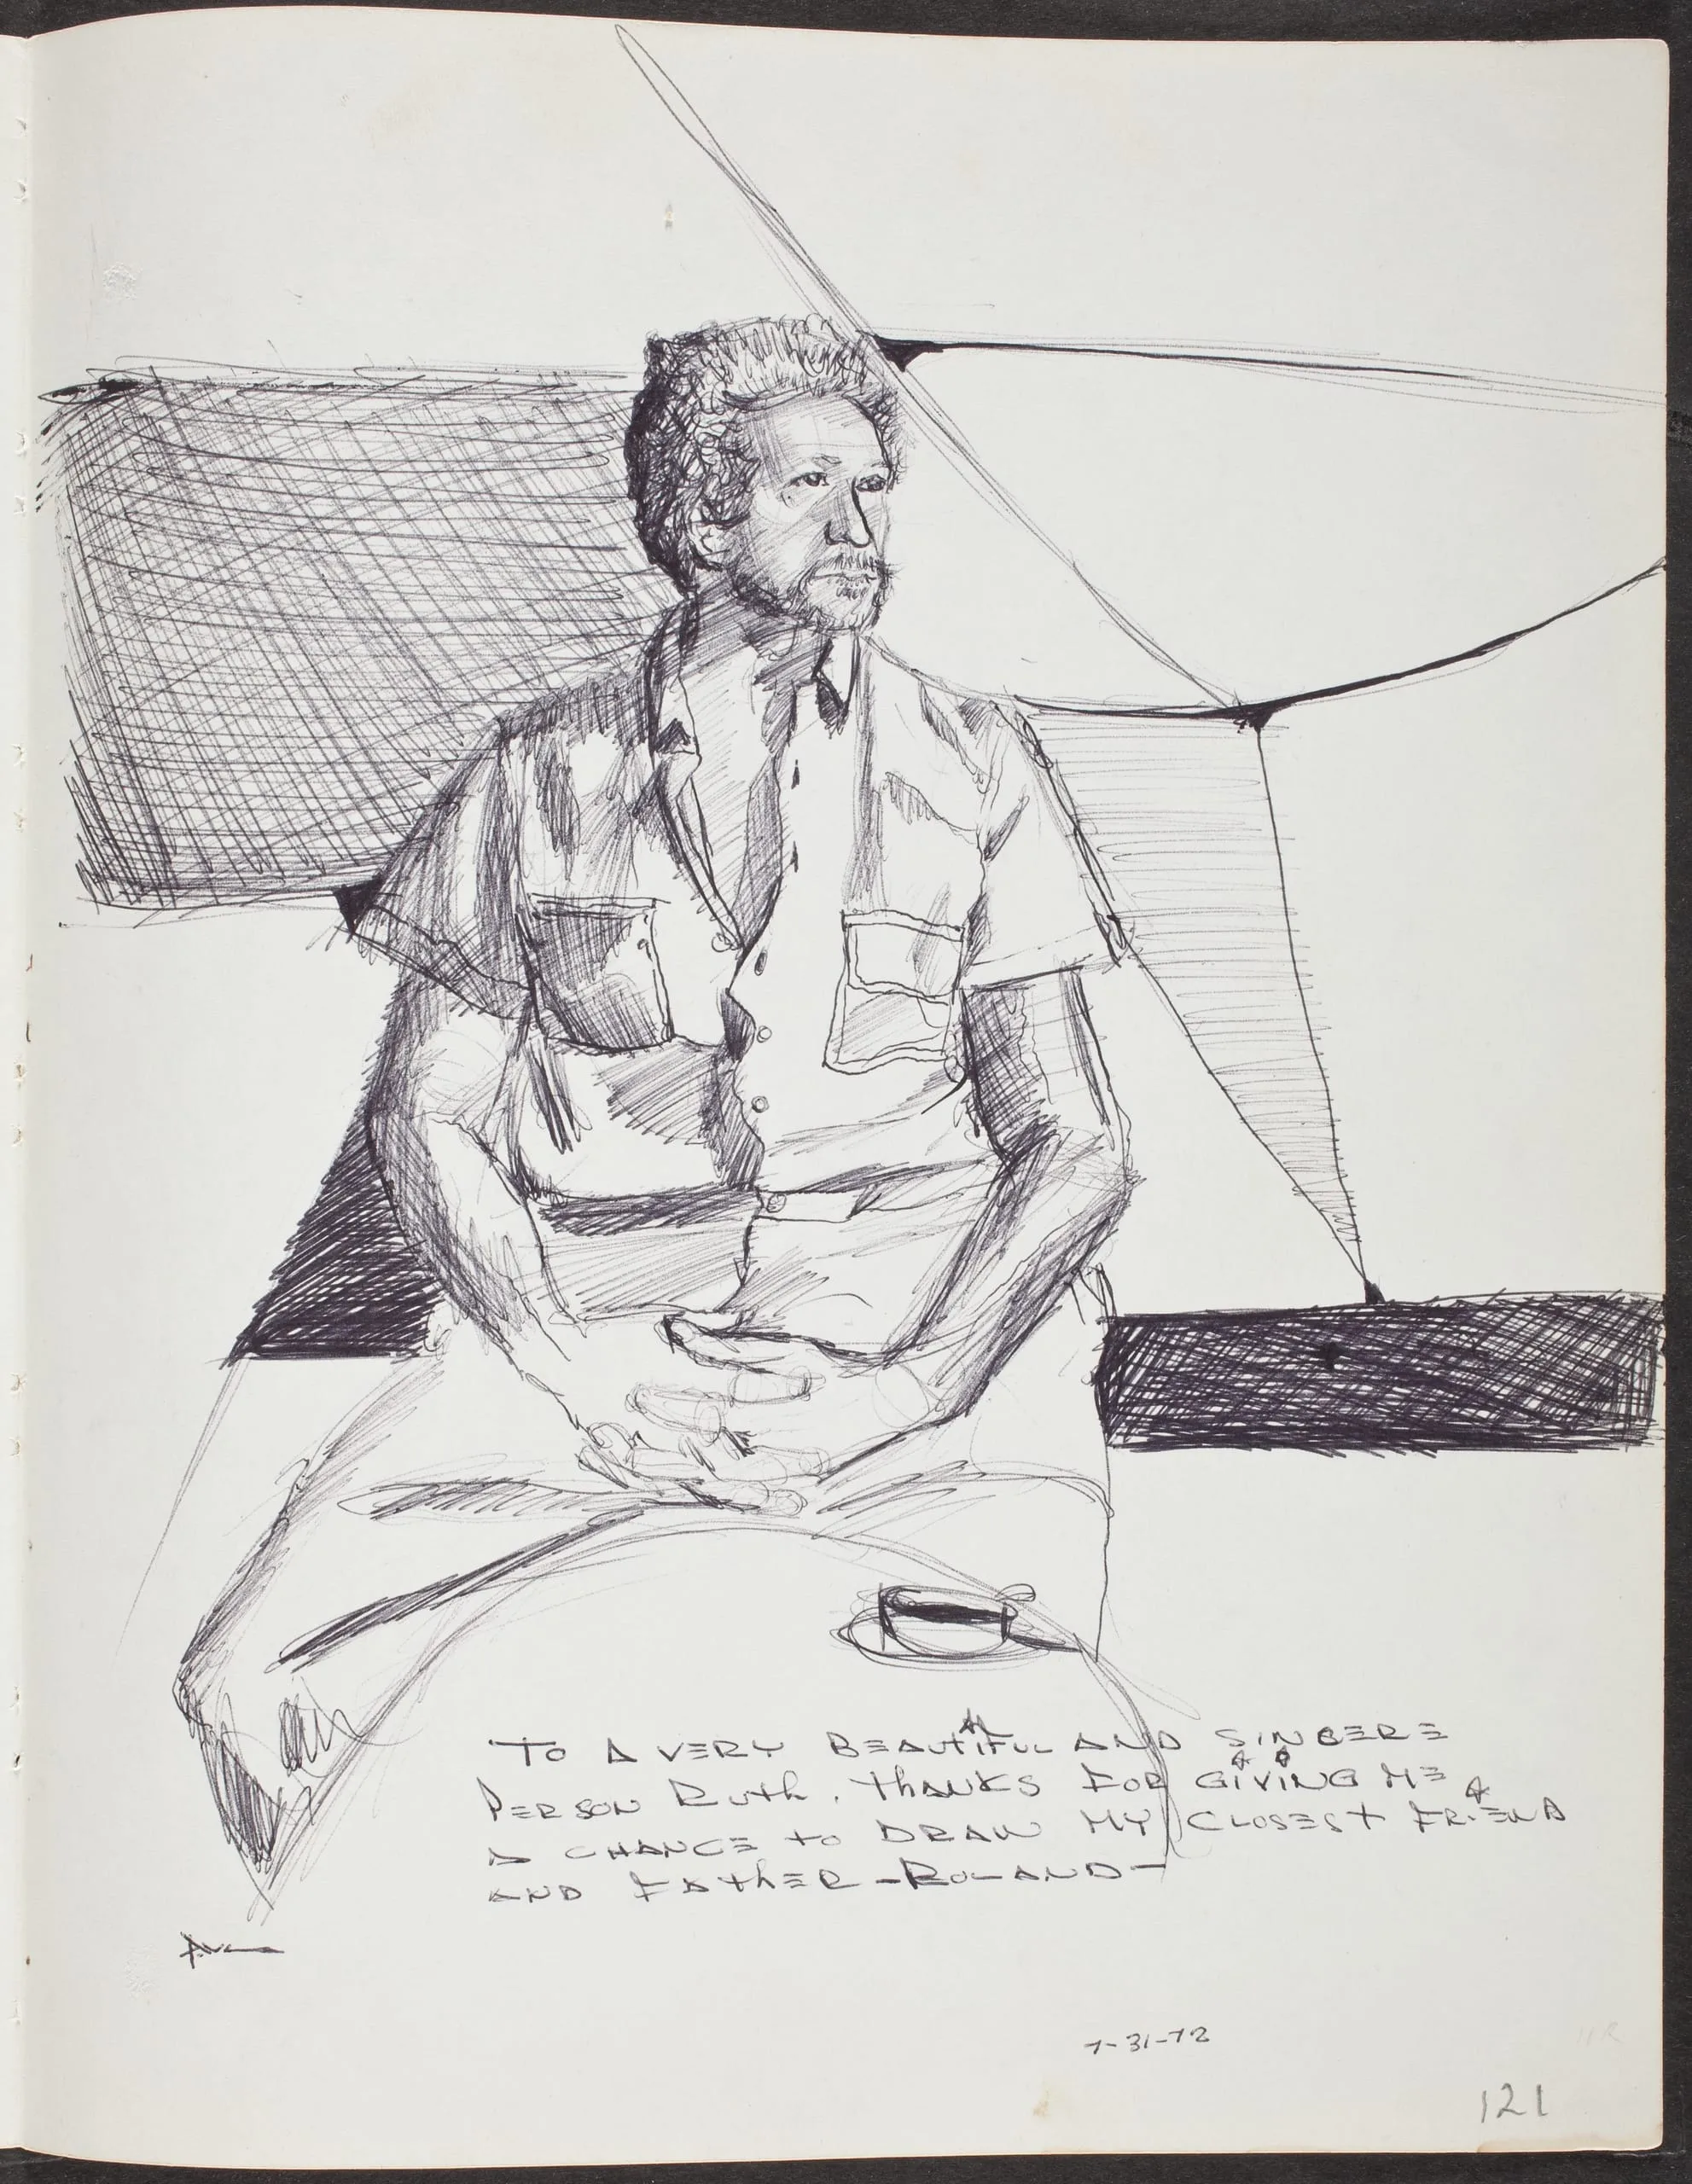 TO A VERY BEAUTIFUL AND SINCERE
PERSON RUTH. THANKS FOR GIVING ME
A CHANCE TO DRAW MY CLOSEST FRIEND
AND FATHER -ROLAND-
7-31-72
121